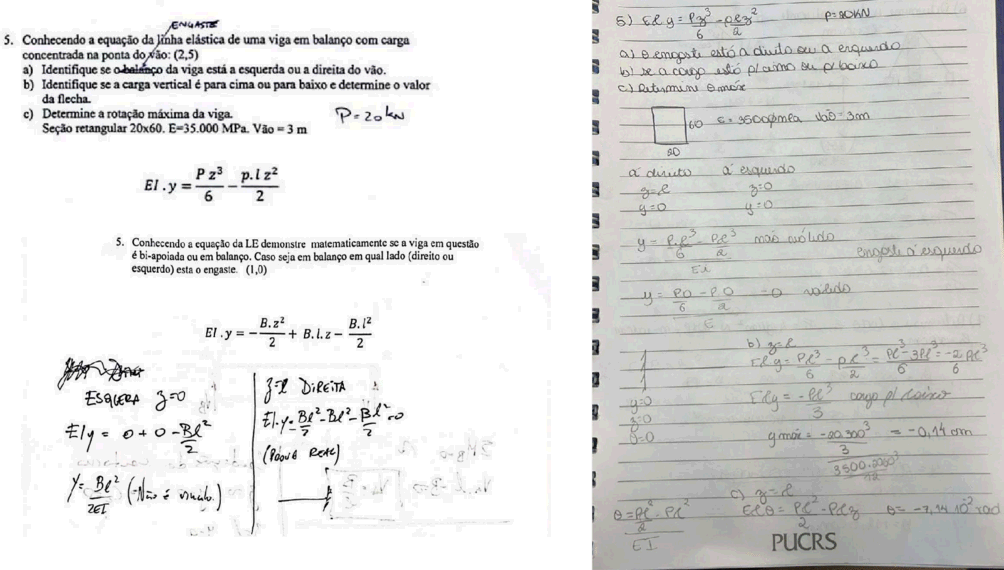 ENGASTE
5. Conhecendo a equação da linha elástica de uma viga em balanço com carga
concentrada na ponta do vão: (2,5)
a) Identifique se o balanço da viga está a esquerda ou a direita do vão.
b) Identifique se a carga vertical é para cima ou para baixo e determine o valor
da flecha.
c) Determine a rotação máxima da viga.
P=20kN
Seção retangular 20x60. E=35.000 MPa. Vão = 3 m
EI.y = P z³/6 - p.l z²/2
5. Conhecendo a equação da LE demonstre matematicamente se a viga em questão
é bi-apoiada ou em balanço. Caso seja em balanço em qual lado (direito ou
esquerdo) esta o engaste. (1,0)
EI.y = - B.z²/2 + B.l.z - B.l²/2
ESQUERA z=0
EIy = 0 + 0 - Bl²/2
y = Bl²/2EI (Não é
z=l DIREITA
EI.y = Bl²/2 - Bl² - Bl²/2 = 0
(PROVA REAL)
5) El y = Pz³/6 - plz²/2 P=20KN
a) O engaste está a direita ou a esquerda
b) se a carga está p/ cima ou p/ baixo
c) Determine θ máx
60 E = 35000mPa vão=3m
20
à direita à esquerda
z=l z=0
y=0 y=0
y = P.l³/6 - Pl³/2 não válido
EI
engaste à esquerda
y = P0/6 - P0/2 = 0 válido
E
b) z=l
El y = Pl³/6 - pl³/2 = Pl³-3Pl³/6 = -2Pl³/6
y=0
z=0
θ=0
El y = -Pl³/3 carga p/ baixo
y máx = -20.300³/3 = -0,14 cm
3500.20.60³/12
c) z=l
θ = Pl²/2 - Pl²
EI
El θ = Pl²/2 - Plz θ = -7,14.10⁻² rad
PUCRS